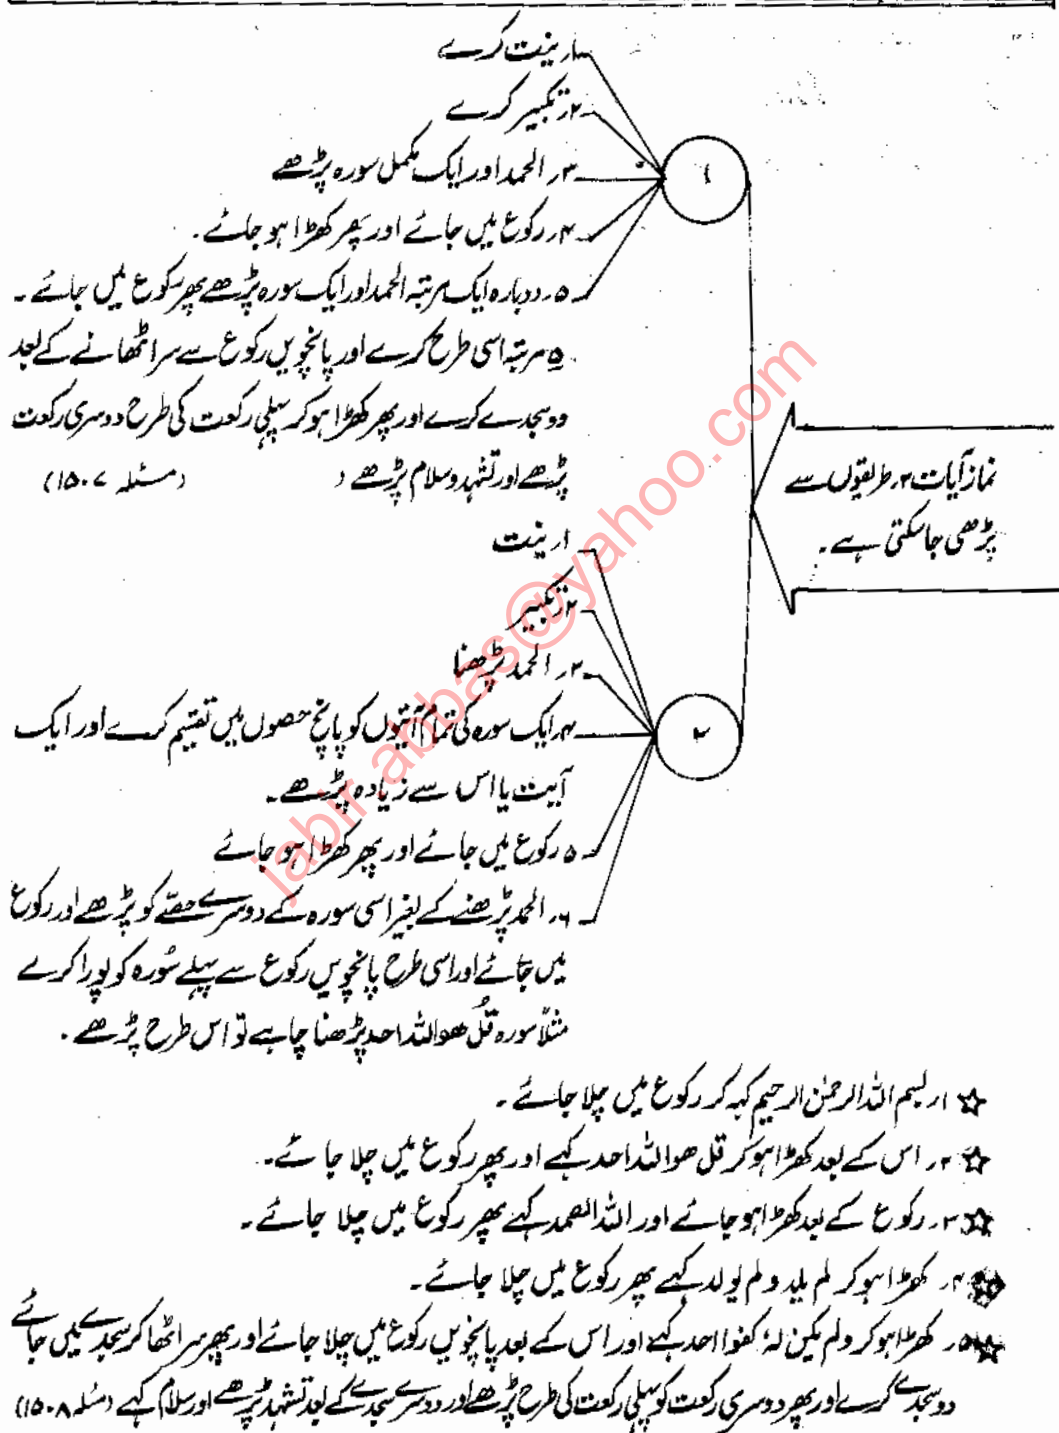 ۱۔ نیت کرے
۲۔ تکبیر کرے
۳۔ الحمد اور ایک مکمل سورہ پڑھے
۴۔ رکوع میں جائے اور پھر کھڑا ہو جائے۔
۵۔ دوبارہ ایک مرتبہ الحمد اور ایک سورہ پڑھے پھر رکوع میں جائے۔
۵ مرتبہ اسی طرح کرے اور پانچویں رکوع سے سر اٹھانے کے بعد
دو سجدے کرے اور پھر کھڑا ہو کر پہلی رکعت کی طرح دوسری رکعت
پڑھے اور تشہد و سلام پڑھے ( (مسئلہ ۱۵۰۷)
۱
نماز آیات ۲ طریقوں سے
پڑھی جا سکتی ہے۔
۱۔ نیت
۲۔ تکبیر
۳۔ الحمد پڑھنا
۴۔ ایک سورہ کی تمام آیتوں کو پانچ حصوں میں تقسیم کرے اور ایک
آیت یا اس سے زیادہ پڑھے۔
۵۔ رکوع میں جائے اور پھر کھڑا ہو جائے
۶۔ الحمد پڑھنے کے بغیر اسی سورہ کے دوسرے حصّے کو پڑھے اور رکوع
میں جائے اور اسی طرح پانچویں رکوع سے پہلے سُورہ کو پورا کرے
مثلاً سورہ قُل ھو اللہ احد پڑھنا چاہے تو اس طرح پڑھے۔
۲
☆ ۱۔ بسم اللہ الرحمٰن الرحیم کہہ کر رکوع میں چلا جائے۔
☆ ۲۔ اس کے بعد کھڑا ہو کر قل ھو اللہ احد کہے اور پھر رکوع میں چلا جائے۔
☆ ۳۔ رکوع کے بعد کھڑا ہو جائے اور اللہ الصمد کہے پھر رکوع میں چلا جائے۔
☆ ۴۔ کھڑا ہو کر لم یلد و لم یولد کہے پھر رکوع میں چلا جائے۔
☆ ۵۔ کھڑا ہو کر ولم یکن لہٗ کفوا احد کہے اور اس کے بعد پانچویں رکوع میں چلا جائے اور پھر سر اٹھا کر سجدے میں جائے
دو سجدے کرے اور پھر دوسری رکعت کو پہلی رکعت کی طرح پڑھے اور دوسرے سجدے کے بعد تشہد پڑھے اور سلام کہے (مسئلہ ۱۵۰۸)
jabir.abbas@yahoo.com